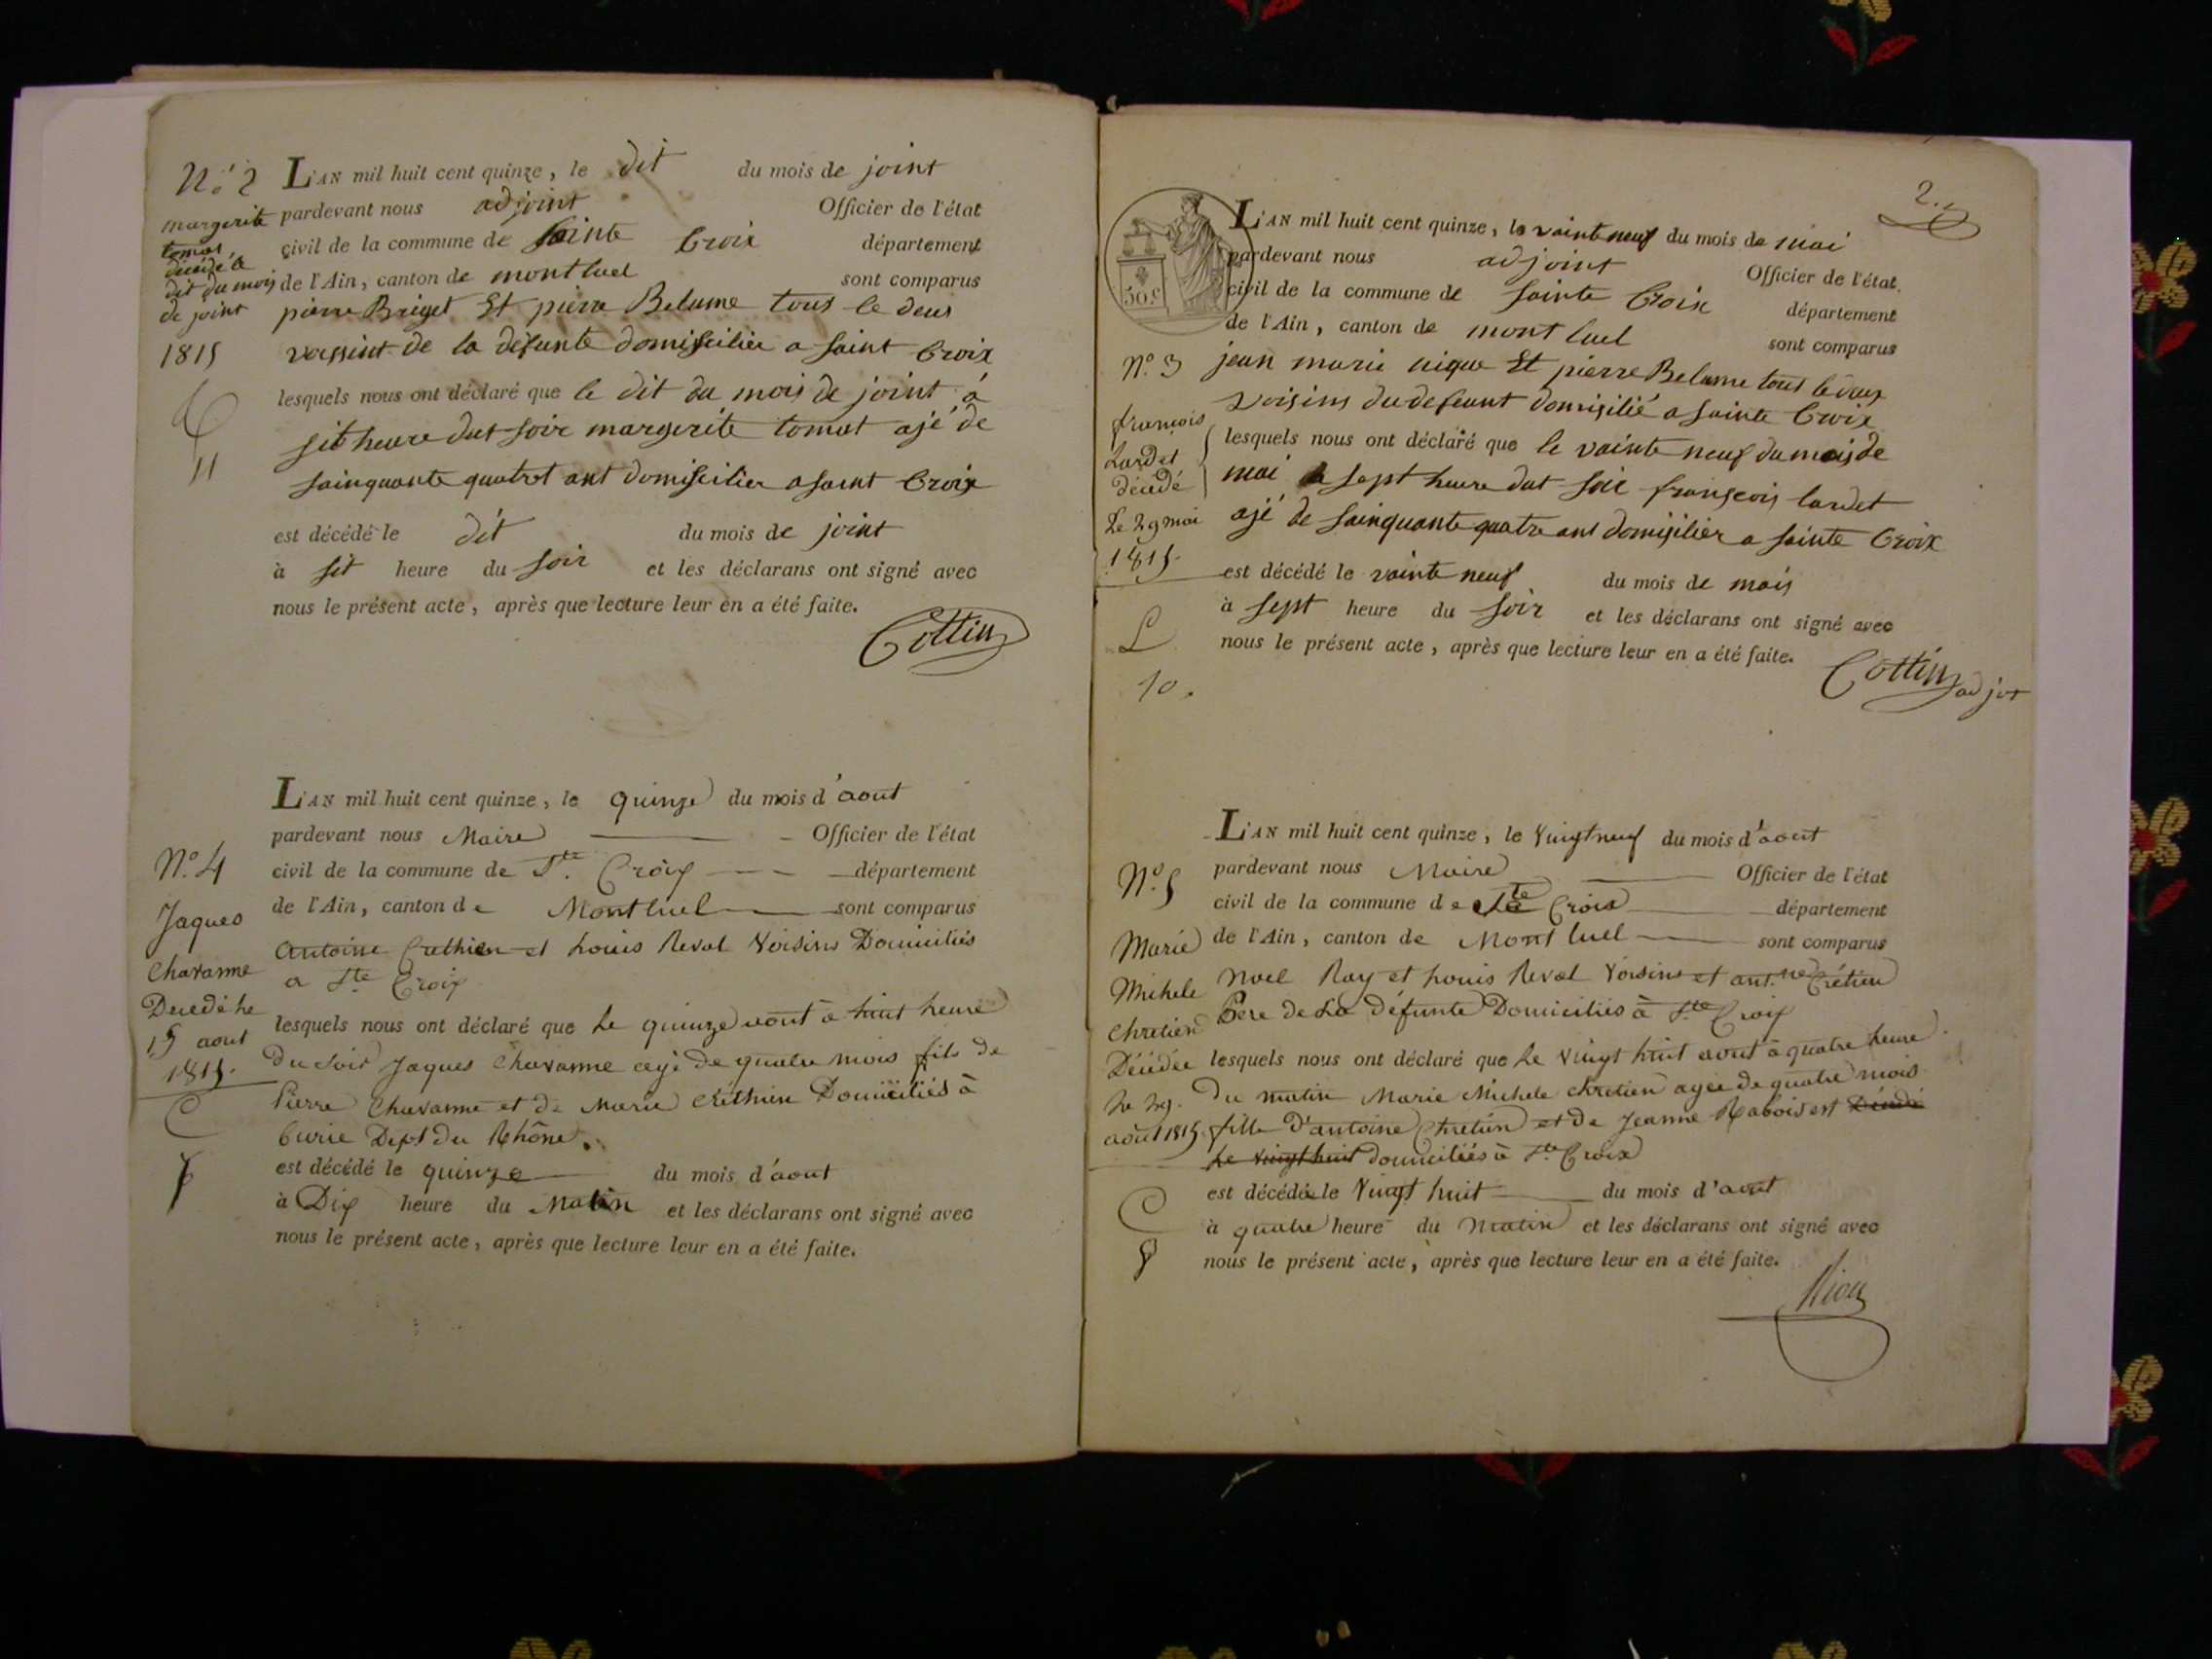 N.º 2
margerite
tomat
décédé le
dit du mois
de joint
1815
11
L'AN mil huit cent quinze, le dit du mois de joint
pardevant nous adjoint Officier de l'état
civil de la commune de sainte Croix département
de l'Ain, canton de montluel sont comparus
pierre Briget Et pierre Belume tous le deus
vossint de la défunte domiscilier a saint Croix
lesquels nous ont déclaré que le dit du mois de joint á
sit heure dut soir margerite tomat ajé de
sainquante quatrot ant domiscilier a saint Croix
est décédé le dit du mois de joint
à sit heure du soir et les déclarans ont signé avec
nous le présent acte, après que lecture leur en a été faite.
Cottin
N.º 4
Jaques
Chavanne
Decedé Le
15 aout
1815.
C
L'AN mil huit cent quinze, le quinze du mois d'aout
pardevant nous Maire Officier de l'état
civil de la commune de Ste. Croix département
de l'Ain, canton de Montluel sont comparus
antoine Crethien et Louis Reval Voisins Domiciliés
a Ste Croix
lesquels nous ont déclaré que Le quinze aout à huit heure
Du soir Jaques Chavanne agé De quatre mois fils de
Pierre Chavanne et de Marie Créthien Domiciliés à
Curie Dept du Rhône.
est décédé le quinze du mois d'aout
à Dix heure du Matin et les déclarans ont signé avec
nous le présent acte, après que lecture leur en a été faite.
2.
50.c
N.º 3
françois
Lardet
décédé
Le 29 mai
1815.
L
10.
L'AN mil huit cent quinze, le vainte neuf du mois de mai
pardevant nous adjoint Officier de l'état
civil de la commune de sainte Croix département
de l'Ain, canton de mont luel sont comparus
jean marie nique Et pierre Belume tous le deus
voisins du defeunt domisilié a sainte Croix
lesquels nous ont déclaré que le vainte neuf du mois de
mai a sept heure dut soir françois lardet
ajé de sainquante quatre ans domisilier a sainte Croix
est décédé le vainte neuf du mois de mais
à sept heure du soir et les déclarans ont signé avec
nous le présent acte, après que lecture leur en a été faite.
Cottin adjot
N.º 5
Marie
Michele
Chretien
Décédée
Le 29.
août 1815.
C
L'AN mil huit cent quinze, le Vingt neuf du mois d'aout
pardevant nous Maire Officier de l'état
civil de la commune de Ste Croix département
de l'Ain, canton de Mont luel sont comparus
Noel Ray et Louis Reval Voisins et ant.ne Crétien
Père de La Défunte Domiciliés à Ste Croix
lesquels nous ont déclaré que Le Vingt huit aout à quatre heure
Du matin Marie Michele chretien agée de quatre mois
fille D'antoine Chretien et de Jeanne Rabois est Décédé
Le Vingt huit domiciliés à Ste Croix
est décédée le Vingt huit du mois d'aout
à quatre heure du Matin et les déclarans ont signé avec
nous le présent acte, après que lecture leur en a été faite.